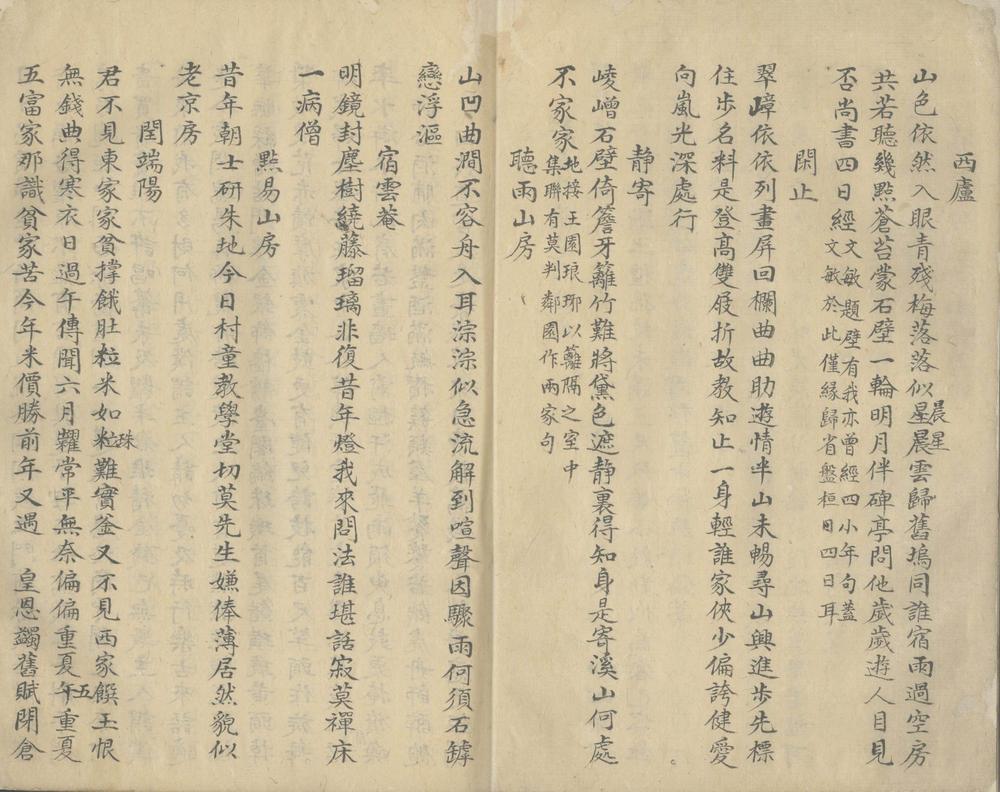 西廬
山色依然入眼青殘梅落落似星晨雲歸舊塢同誰宿雨過空房
晨星
共若聽幾點蒼苔蒙石壁一輪明月伴碑亭問他歲歲遊人目見
否尚書四日經文敏題壁有我亦曾經四小年句蓋文敏於此僅緣歸省盤桓日四日耳
閑止
翠嶂依依列畫屏回欄曲曲助遊情半山未暢尋山興進步先標
住步名料是登高雙屐折故教知止一身輕誰家俠少偏誇健愛
向嵐光深處行
静寄
崚嶒石壁倚簷牙籬竹難將黛色遮静裏得知身是寄溪山何處
不家家地接王園琅琊以籬隔之室中集聯有莫判鄰園作兩家句
聽雨山房
山凹曲澗不容舟入耳淙淙似急流解到喧聲因驟雨何須石罅
戀浮漚
宿雲菴
明鏡封塵樹繞藤瑠璃非復昔年燈我來問法誰堪話寂莫禪床
一病僧
點易山房
昔年朝士研朱地今日村童教學堂切莫先生嫌俸薄居然貌似
老京房
閏端陽
君不見東家家貧撑餓肚粒米如粒難實釜又不見西家饌玉恨
珠
無錢典得寒衣日過午傳聞六月糶常平無奈偏偏重夏午重夏
五
五富家那識貧家苦今年米價勝前年又過 皇恩蠲舊賦閉倉